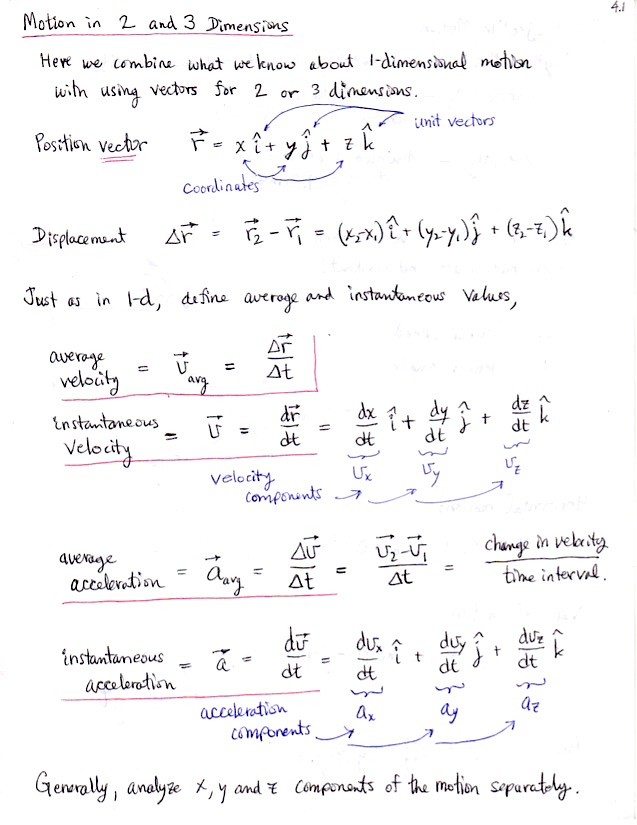 4.1
Motion in 2 and 3 Dimensions
Here we combine what we know about 1-dimensional motion
with using vectors for 2 or 3 dimensions.
unit vectors
Position vector r⃗ = x î + y ĵ + z k̂
coordinates
Displacement Δr⃗ = r⃗₂ - r⃗₁ = (x₂-x₁) î + (y₂-y₁) ĵ + (z₂-z₁) k̂
Just as in 1-d, define average and instantaneous values,
average velocity = v⃗avg = Δr⃗/Δt
instantaneous velocity = v⃗ = dr⃗/dt = dx/dt î + dy/dt ĵ + dz/dt k̂
velocity components vx vy vz
average acceleration = a⃗avg = Δv⃗/Δt = (v⃗₂-v⃗₁)/Δt = change in velocity/time interval.
instantaneous acceleration = a⃗ = dv⃗/dt = dvx/dt î + dvy/dt ĵ + dvz/dt k̂
acceleration components ax ay az
Generally, analyze x, y and z components of the motion separately.